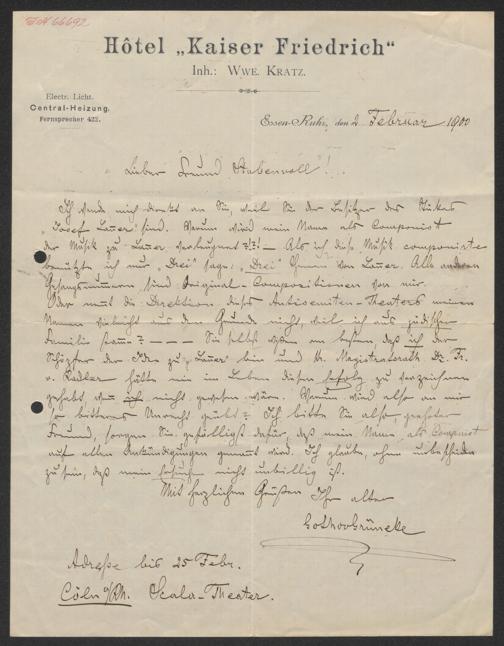 Hôtel „Kaiser Friedrich“
Inh.: Wwe. Kratz.
Electr. Licht.
Central-Heizung.
Fernsprecher 422.
Essen-Ruhr, den 2 Februar 1900
Lieber Freund Stubenvoll!
Ich wende mich direkt an Sie, weil Sie der Besitzer des Stückes
„Josef Lauer“ sind. Warum wird mein Name als Componist
der Musik zu Lauer verleugnet?!?! – Als ich diese Musik componirte
benützte ich nur „Drei“ sage: „Drei“ von Lauer. Alle anderen
Gesangsnummern sind Original-Compositionen von mir.
Oder nennt die Direktion dieses Antisemiten-Theaters meinen
Namen vielleicht aus dem Grunde nicht, weil ich aus jüdischer
Familie stamme? – – – Sie selbst wissen am besten, daß ich der
Schöpfer der Idee zu „Lauer“ bin und H. Magistratsrath Dr. Fr.
v. Radler hätte nie im Leben diesen Erfolg zu verzeichnen
gehabt, wenn ich nicht gewesen wäre. Warum wird also an mir
so bitteres Unrecht geübt? Ich bitte Sie also, geehrter
Freund, sorgen Sie gefälligst dafür, daß mein Name als Componist
auf allen Ankündigungen genannt wird. Ich glaube, ohne unbescheiden
zu sein, daß mein nicht unbillig ist.
Mit herzlichen Grüßen Ihr alter
GothovGrüneke
Adresse bis 25 Febr.
Cöln a/Rh. Scala-Theater.